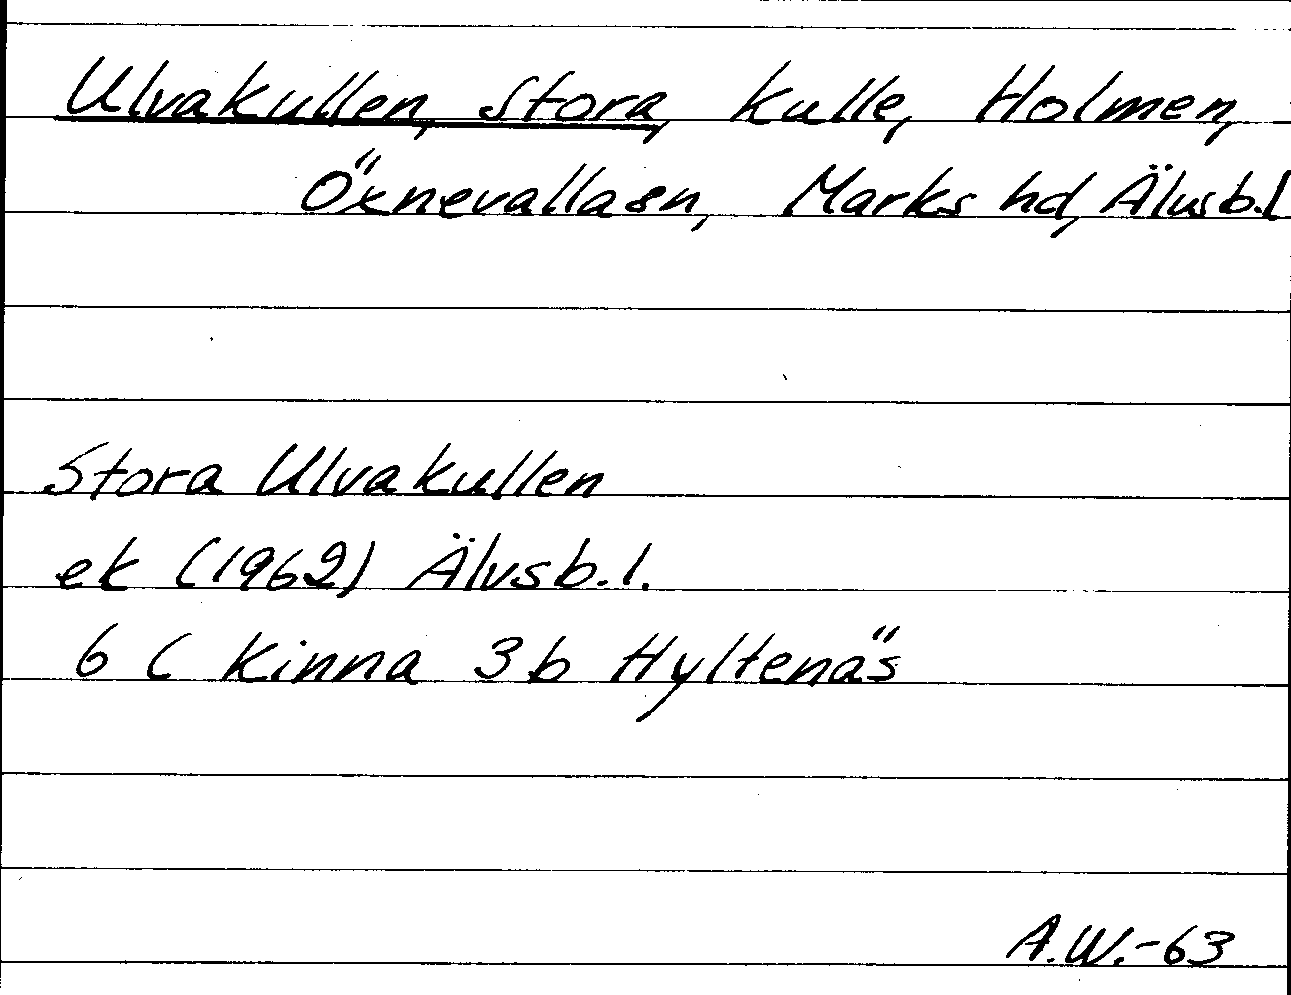 Ulvakullen, Stora, kulle, Holmen,
Öxnevalla sn, Marks hd, Älvsb.l
Stora Ulvakullen
ek (1962) Älvsb.l.
6 C Kinna 3b Hyltenäs
A.W.-63